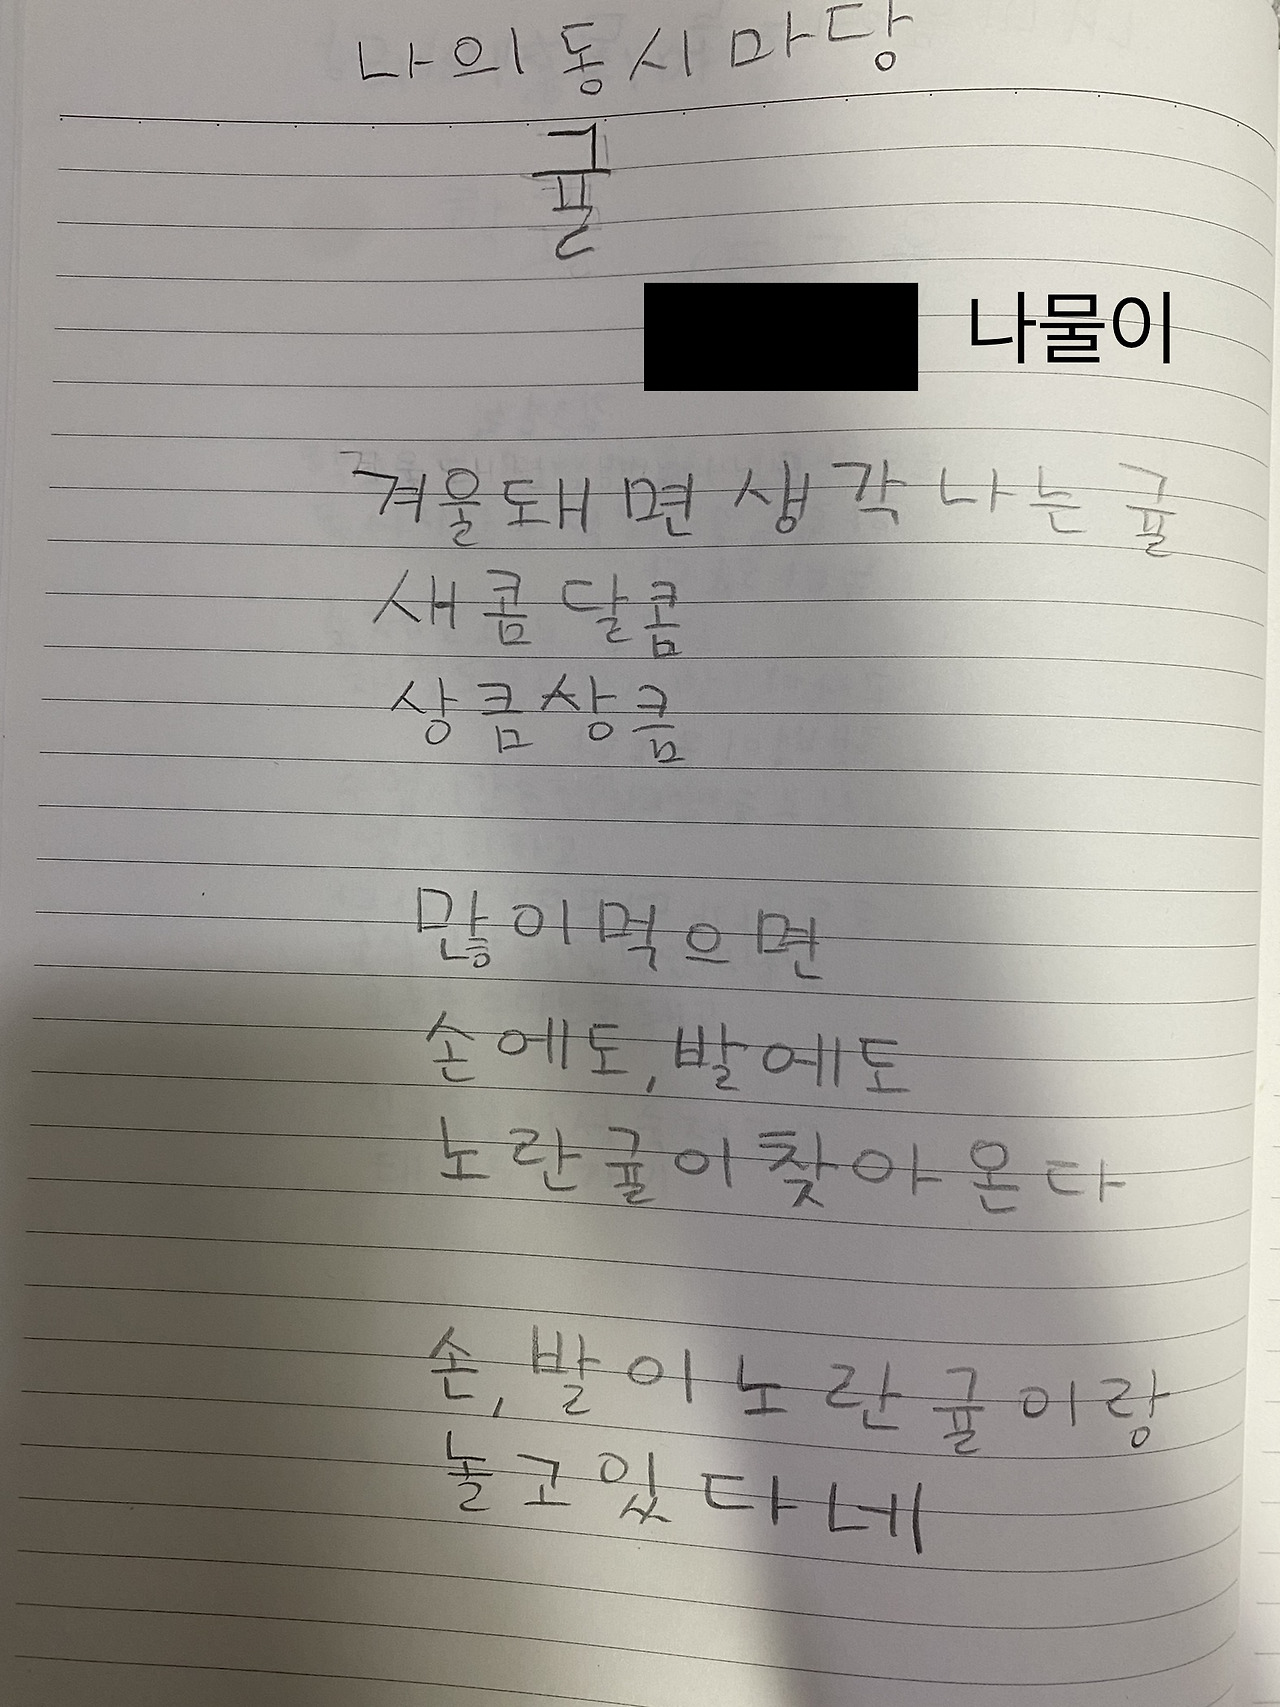 나의 동시 마당
귤
나물이
겨울돼면 생각나는 귤
새콤달콤
상큼상큼
많이 먹으면
손에도, 발에도
노란 귤이 찾아온다
손, 발이 노란 귤이랑
놀고 있다네